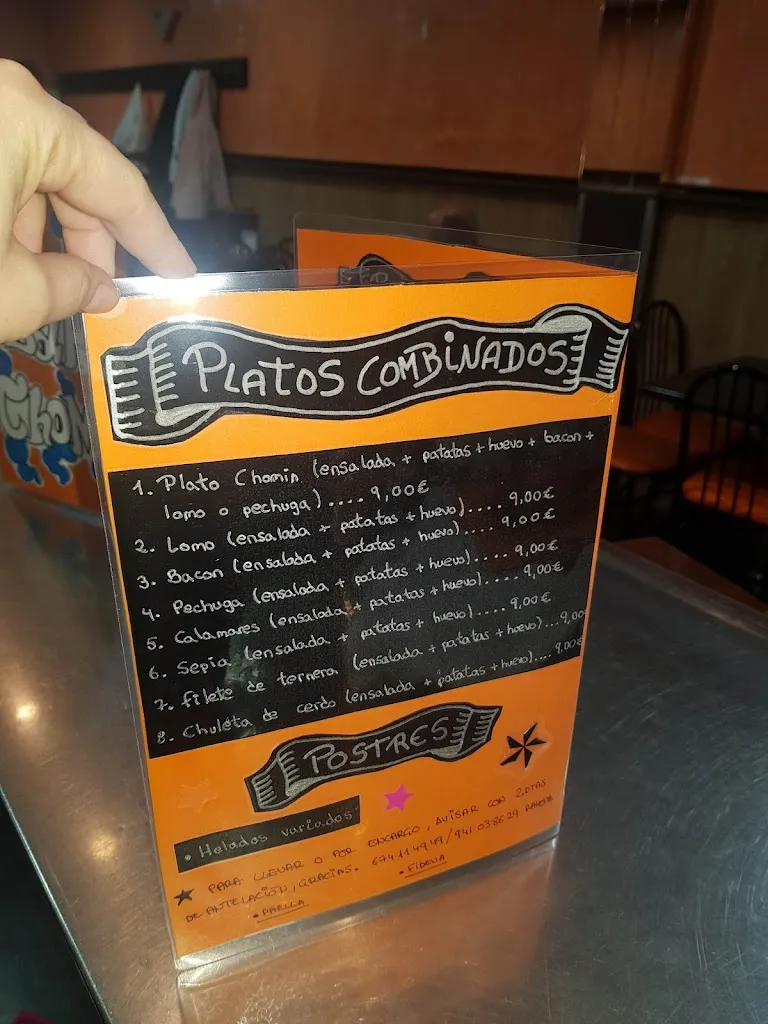 PLATOS COMBINADOS
1. Plato Chomin (ensalada + patatas + huevo + bacon +
lomo o pechuga).... 9,00€
2. Lomo (ensalada + patatas + huevo).... 9,00€
3. Bacon (ensalada + patatas + huevo).... 9,00€
4. Pechuga (ensalada + patatas + huevo).... 9,00€
5. Calamares (ensalada + patatas + huevo).... 9,00€
6. Sepia (ensalada + patatas + huevo).... 9,00€
7. Filete de ternera (ensalada + patatas + huevo)...9,00
8. Chuleta de cerdo (ensalada + patatas + huevo)....9,00€
POSTRES
• Helados variados
PARA LLEVAR O POR ENCARGO, AVISAR CON 2 DIAS
DE ANTELACIÓN, GRACIAS. 674114949/941 038629
• PAELLA • FIDEUA